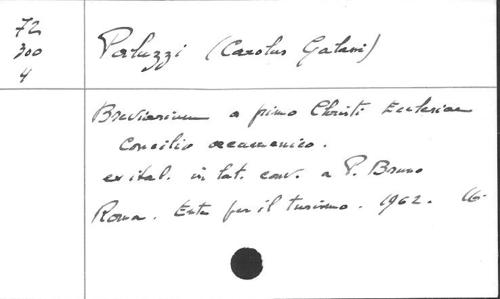 72
300
4
Perluzzi (Carolus Galassi)
Breviarium a primo Christi Ecclesiae
Concilio oecumenico.
ex ital. in lat. conv. a P. Bruno
Roma. Ente per il turismo. 1962. 16